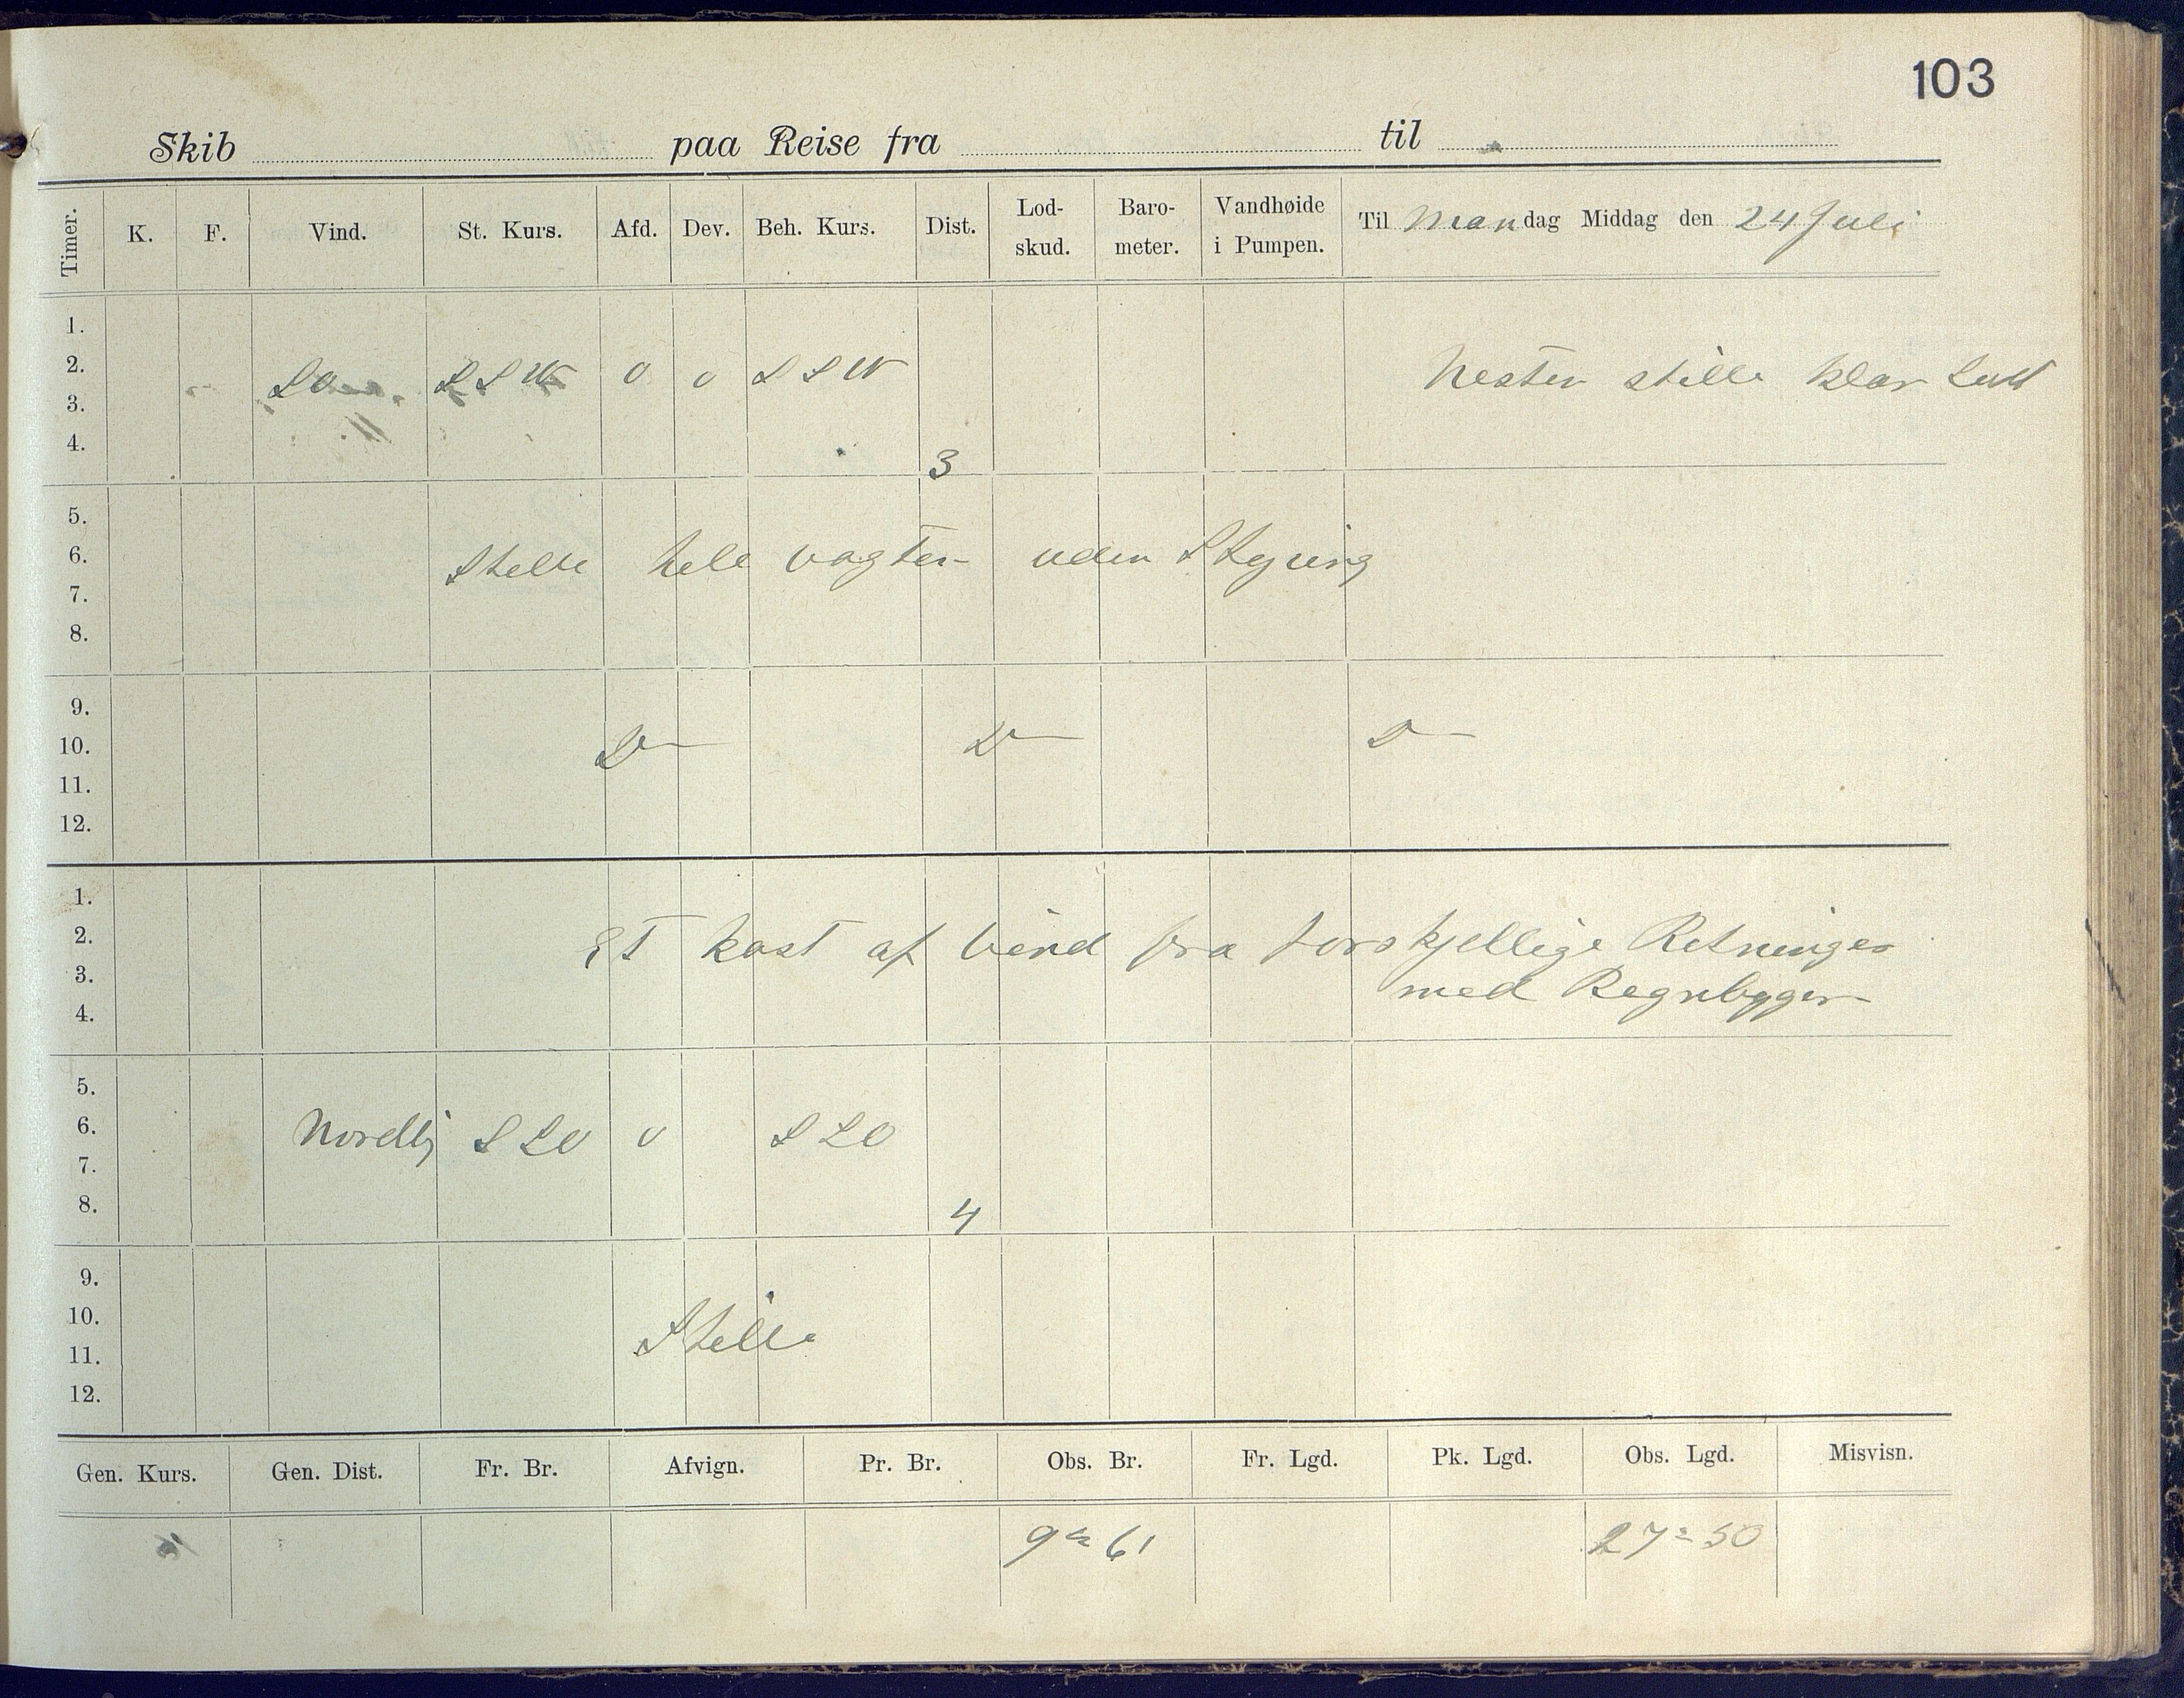 103
Skib paa Reise fra til
Timer. K. F. Vind. St. Kurs. Afd. Dev. Beh. Kurs. Dist. Lod-skud. Baro-meter. Vandhøide i Pumpen. Til Mandag Middag den 24 Juli
1.
2. SO SSW 0 0 SSW Nesten stille klar Luft
3.
4. 3
5.
6. Stille hele vagten uden Styring
7.
8.
9.
10. Do Do Do
11.
12.
1.
2. Et kast af vind fra forskjellige Retninger
3. med Regnbyger
4.
5.
6. Nordlij SSO 0 SSO
7.
8. 4
9.
10. Stille
11.
12.
Gen. Kurs. Gen. Dist. Fr. Br. Afvign. Pr. Br. Obs. Br. Fr. Lgd. Pk. Lgd. Obs. Lgd. Misvisn.
9 = 61 27 = 50